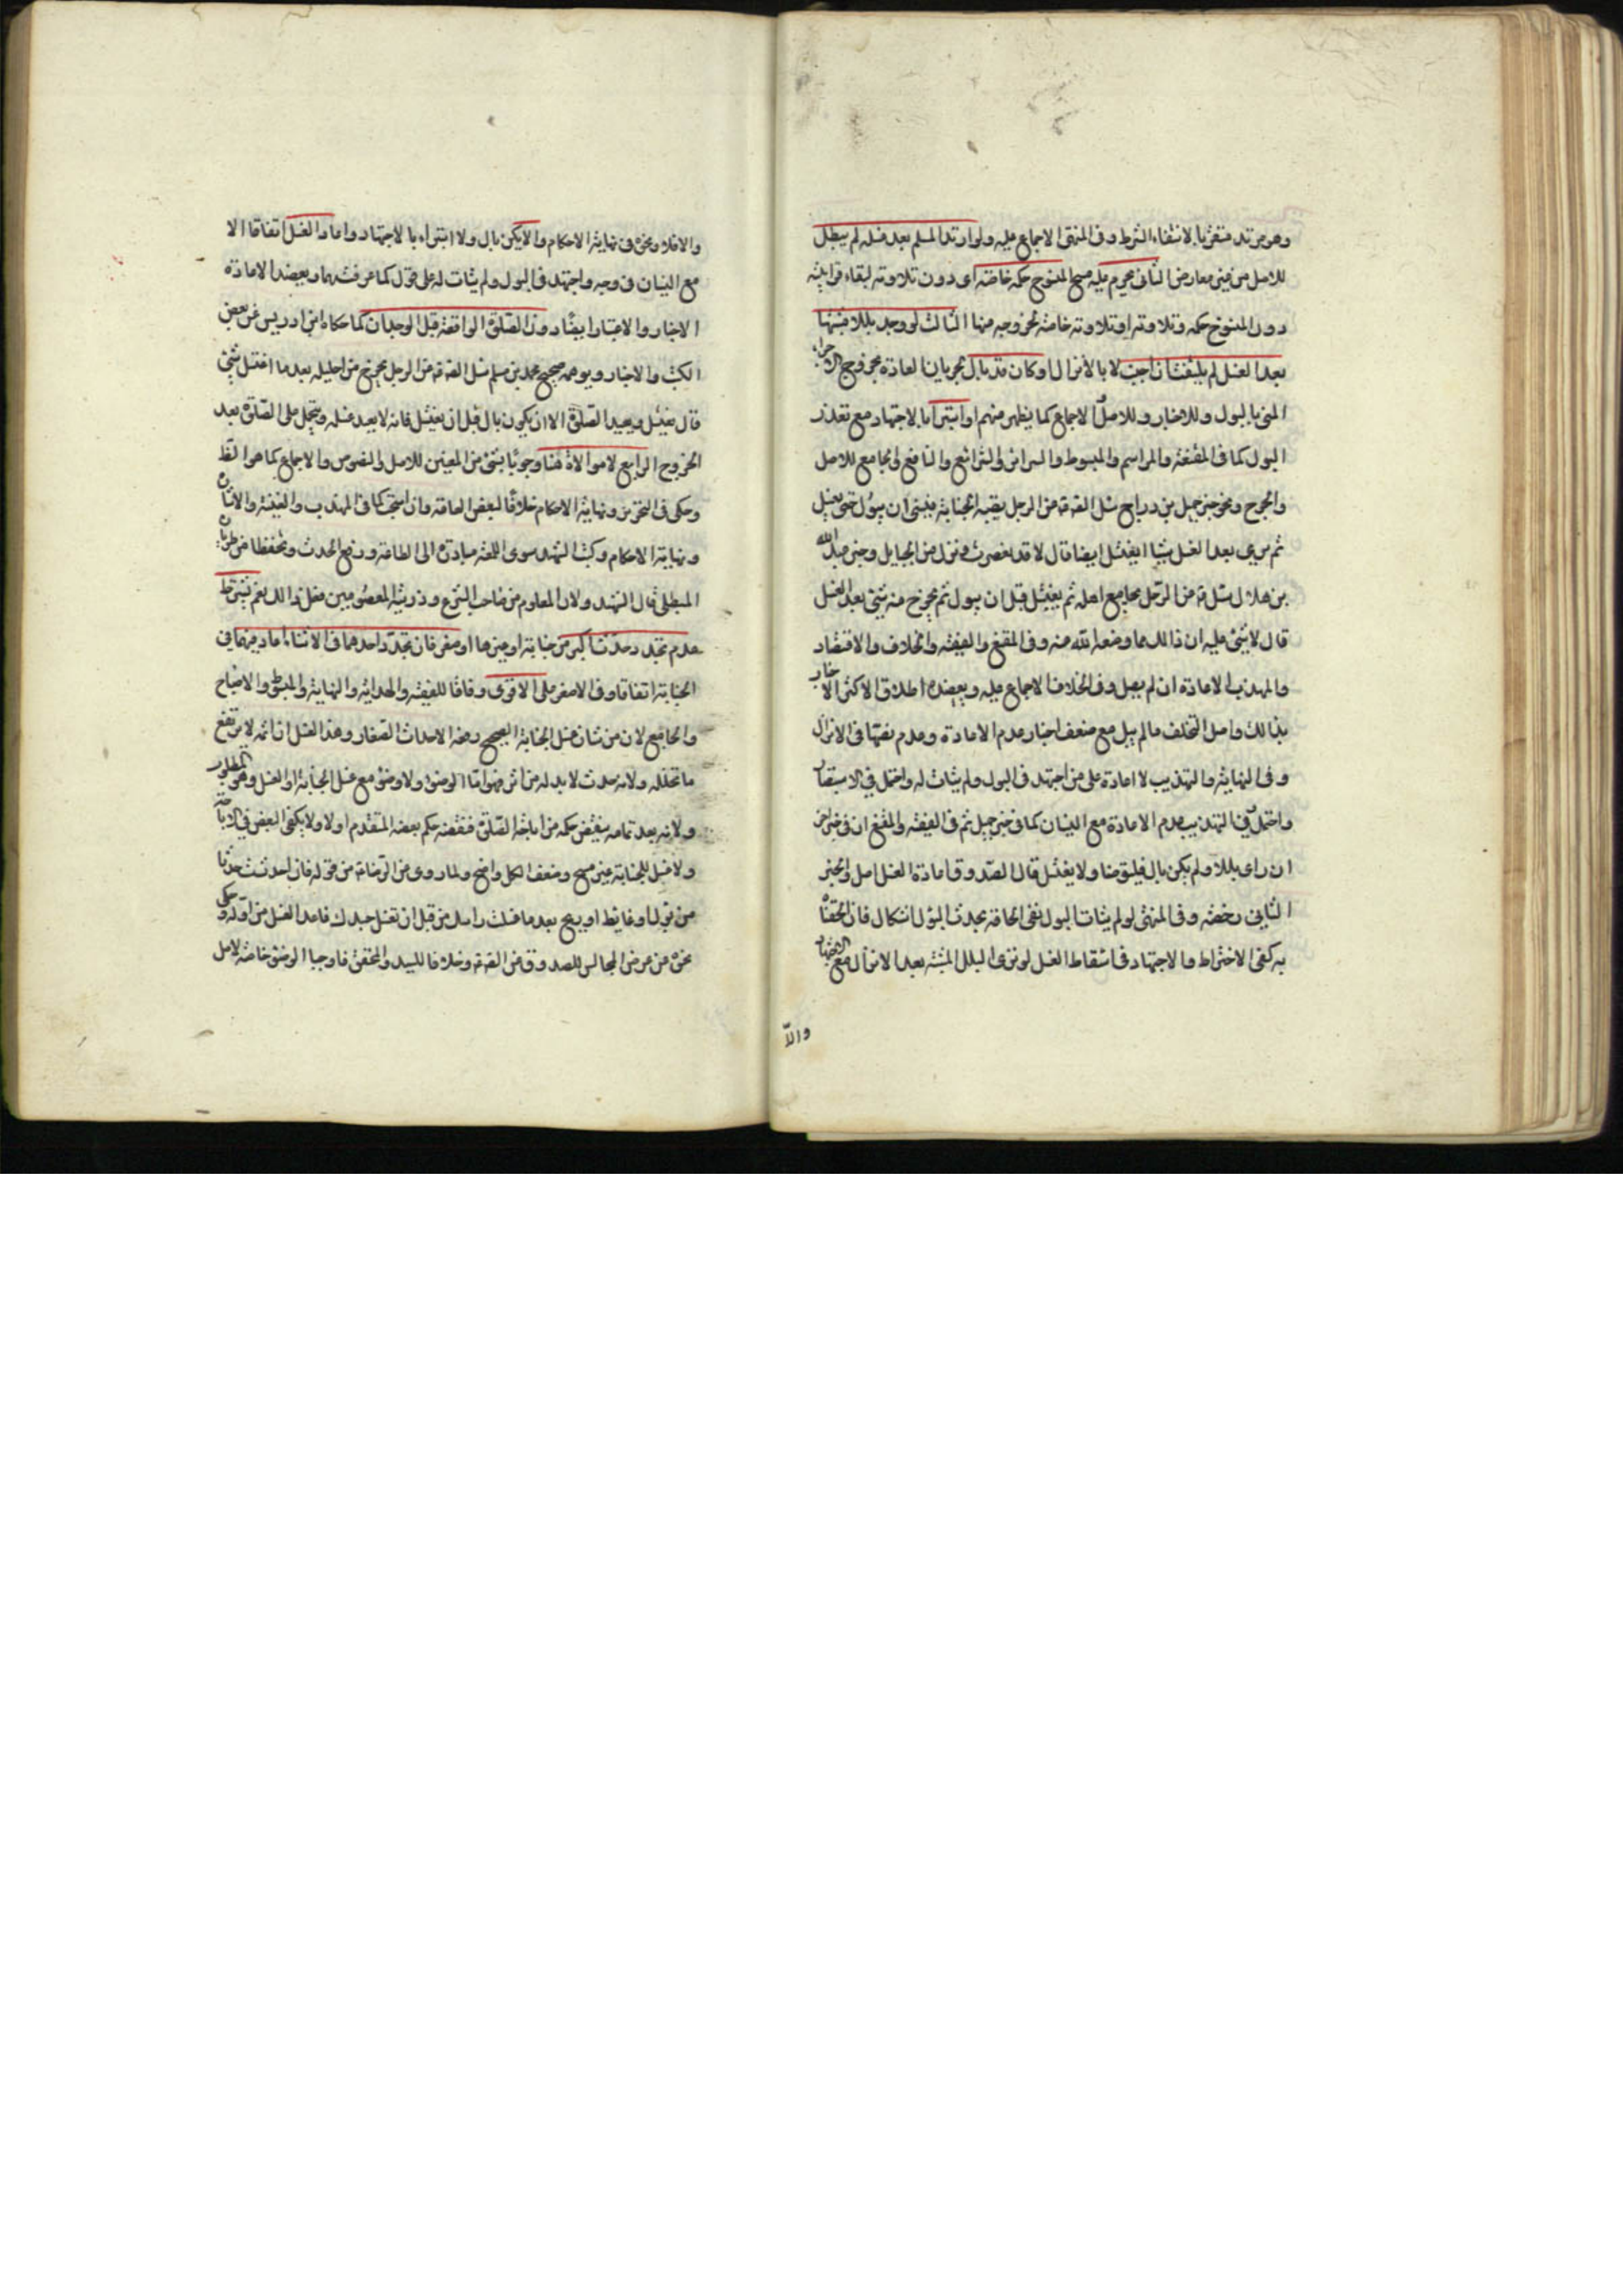 وهو مرتد متقربا لانتفاء الشرط وفي المنتهى الاجماع عليه ولو ارتد المسلم بعد غسله لم يبطل
للاصل من غير معارض الثاني يحرم عليه مس المنسوخ حكمه خاصة اي دون تلاوته لبقاء قرانيته
دون المنسوخ حكمه وتلاوته او تلاوته خاصة لخروجه منها الثالث لو وجد بللا مشتبها
بعد الغسل لم يلتفت ان اجنب لا بالانزال او كان قد بال لجريان العادة بخروج الاجزاء
المني بالبول وللاخبار وللاصل والاجماع كما يظهر منهم او استبرأ بالاجتهاد مع تعذر
البول كما في المقنعة والمراسم والمبسوط والسرائر والشرائع والنافع والجامع للاصل
والحرج ونحو خبر جميل بن دراج سئل الصادق من الرجل يصيبه الجنابة فينسى ان يبول حتى يغتسل
ثم يرى بعد الغسل شيئا ايغتسل ايضا قال لا قد تعصرت ونزل من الحبايل وخبر عبد الله
بن هلال سئله من الرجل يجامع اهله ثم يغتسل قبل ان يبول ثم يخرج منه شيئ بعد الغسل
قال لا شيئ عليه ان ذالك مما وضعه الله عنه وفي المقنع والفقيه والخلاف والاقتصاد
والمهذب الاعادة ان لم يبل وفي الخلاف الاجماع عليه ويعضده اطلاق الاكثر الاخبار
بذالك واصل التخلف ما لم يبل مع ضعف اخبار عدم الاعادة وعدم نصها في الانزال
وفي النهاية والتهذيب لا اعادة على من اجتهد في البول ولم يتأت له واحتمل في الاستبصار
واحتمل في التهذيب عدم الاعادة مع النسيان كما في خبر جميل ثم في الفقيه والمقنع ان في خبر اخر
ان راى بللا ولم يكن بال فليتوضا ولا يغتسل قال الصدوق اعادة الغسل اصل والخبر
الثاني رخصة وفي المنتهى لو لم يتأت البول ففي الحاقه بحدث البول اشكال فان الحقناه
به كفى الاختراط والاجتهاد في اسقاط الغسل لو نزى البلل المشتبه بعد الانزال مع الاجتهاد
والا
والا فلا ونحوه في نهاية الاحكام والا يكن بال ولا استبراء بالاجتهاد واعاد الغسل اتفاقا الا
مع النسيان في وجه واجتهد في البول ولم يتأت له على قول كما عرفتهما ويعضد الاعادة
الاخبار والاعتبار ايضا دون الصلوة الواقعة قبل الوجدان كما حكاه ابن ادريس عن بعض
الكتب والاخبار ويوهمه صحيح محمد بن مسلم سئل الصادق من الرجل يخرج من احليله بعد ما اغتسل شيئ
قال يغتسل ويعيد الصلوة الا ان يكون بال قبل ان يغتسل فانه لا يعيد غسله ويحمل على الصلوة بعد
الخروج الرابع لا موالاة هنا وجوبا بشيئ من المعنيين للاصل والنصوص والاجماع كما هو الظ
وحكي في التحرير ونهاية الاحكام خلافا لبعض العامة وان استحبت كما في المهذب والغنية والاشارة
ونهاية الاحكام وكتب الشهيد سوى اللمعة مبادرة الى الطاعة ورفع الحدث وتحفظا من طريان
المبطل قال الشهيد ولان المعلوم من صاحب الشرع وذريته المعصومين فعل ذالك نعم يشترط
عدم تجدد حدث اكبر من جنابة او غيرها او صغر فان تجدد احدهما في الاثناء اعاد فيهما في
الجنابة اتفاقا وفي الاصغر على الاقوى وفاقا للفقيه والهداية والنهاية والمبسوط والاصباح
والجامع لان من شأن غسل الجنابة الصحيح رفعه الاحداث الصغار وهذا الغسل ان اتمه لا يرتفع
ما تخلله ولانه حدث لا بد له من اثر فهو اما الوضوء ولا وضوء مع غسل الجنابة او الغسل وهو المطلوب
ولانه بعد تمامه ينقض حكمه من اباحة الصلوة فنقضه حكم بعضه المتقدم اولا ولا يكفي البعض في الاباحة
ولا غسل للجنابة غير مبيح وضعف الكل واضح ولما روى عن الرضا من قوله فان احدثت حدثا
من بول او غائط او ريح بعد ما غسلت راسك من قبل ان تغسل جسدك فاعد الغسل من اوله وحكي
نحوه من عرض المجالس للصدوق عن الصادق وخلافا للسيد والمحقق فاوجبا الوضوء خاصة لاصل